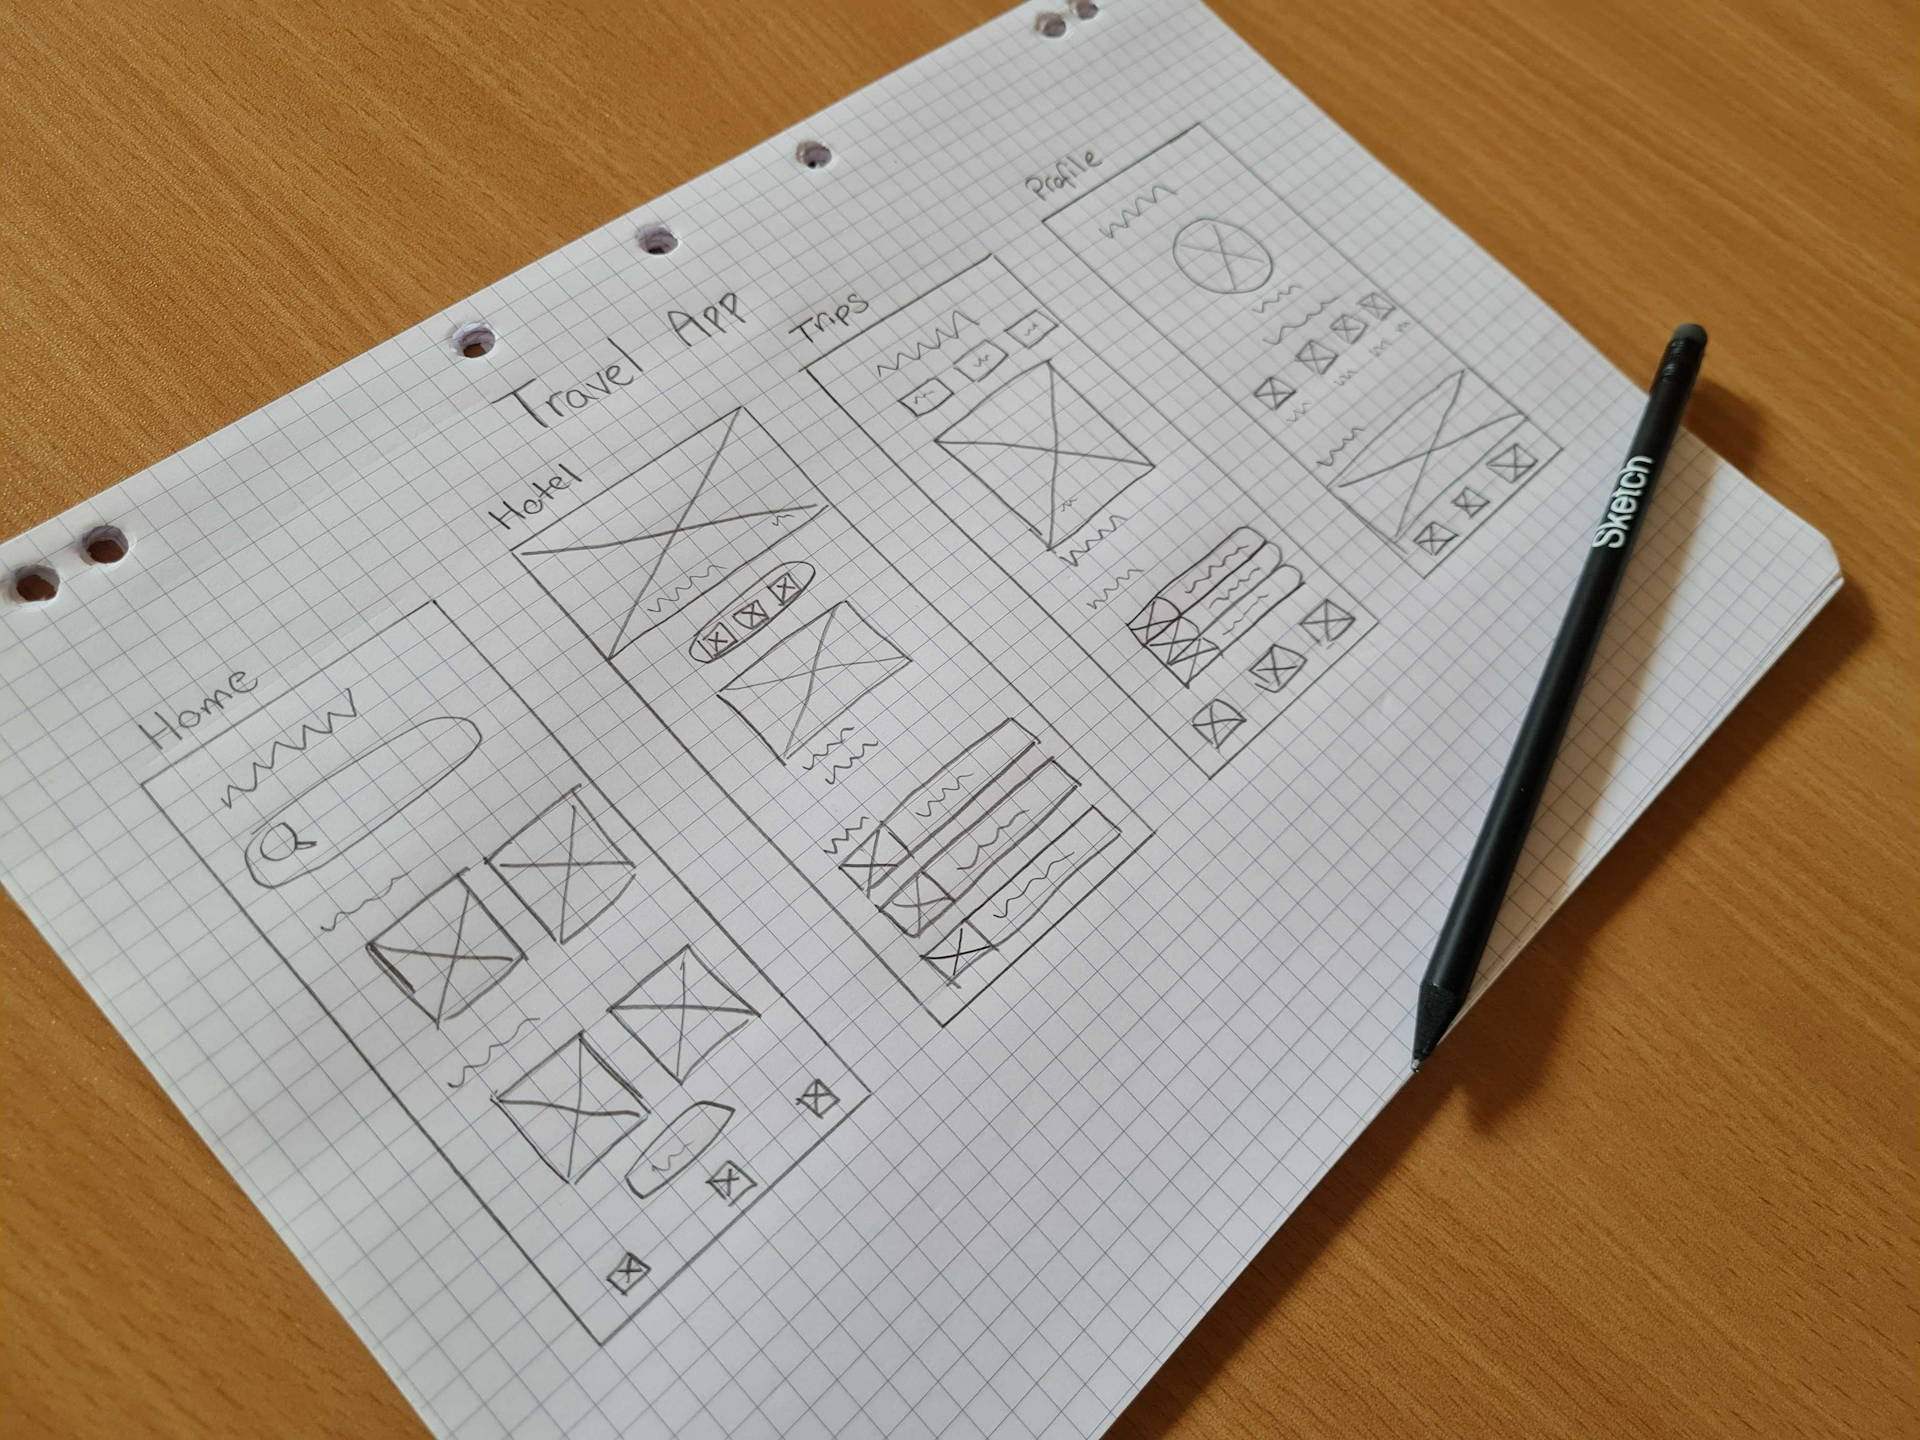 Travel App
Home
Hotel
Trips
Profile
Sketch